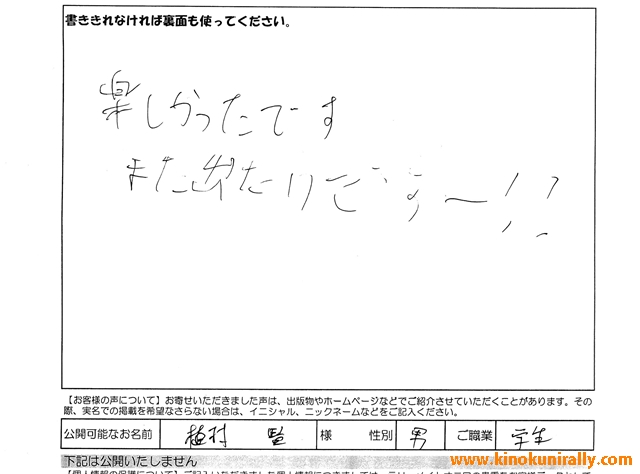 書ききれなければ裏面も使ってください。
楽しかったです
また出たいです〜!!
【お客様の声について】お寄せいただきました声は、出版物やホームページなどでご紹介させていただくことがあります。その
際、実名での掲載を希望なさらない場合は、イニシャル、ニックネームなどをご記入ください。
公開可能なお名前 植村 監 様 性別 男 ご職業 学生
下記は公開いたしません
www.kinokunirally.com